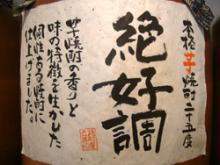 本格芋焼酎二十五度
絶好調
芋焼酎の香りと
味の特徴を生かした
個性ある焼酎に
仕上げました。